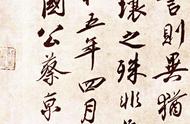 言則異猶
瓌之殊非
十五年四月
國公蔡京